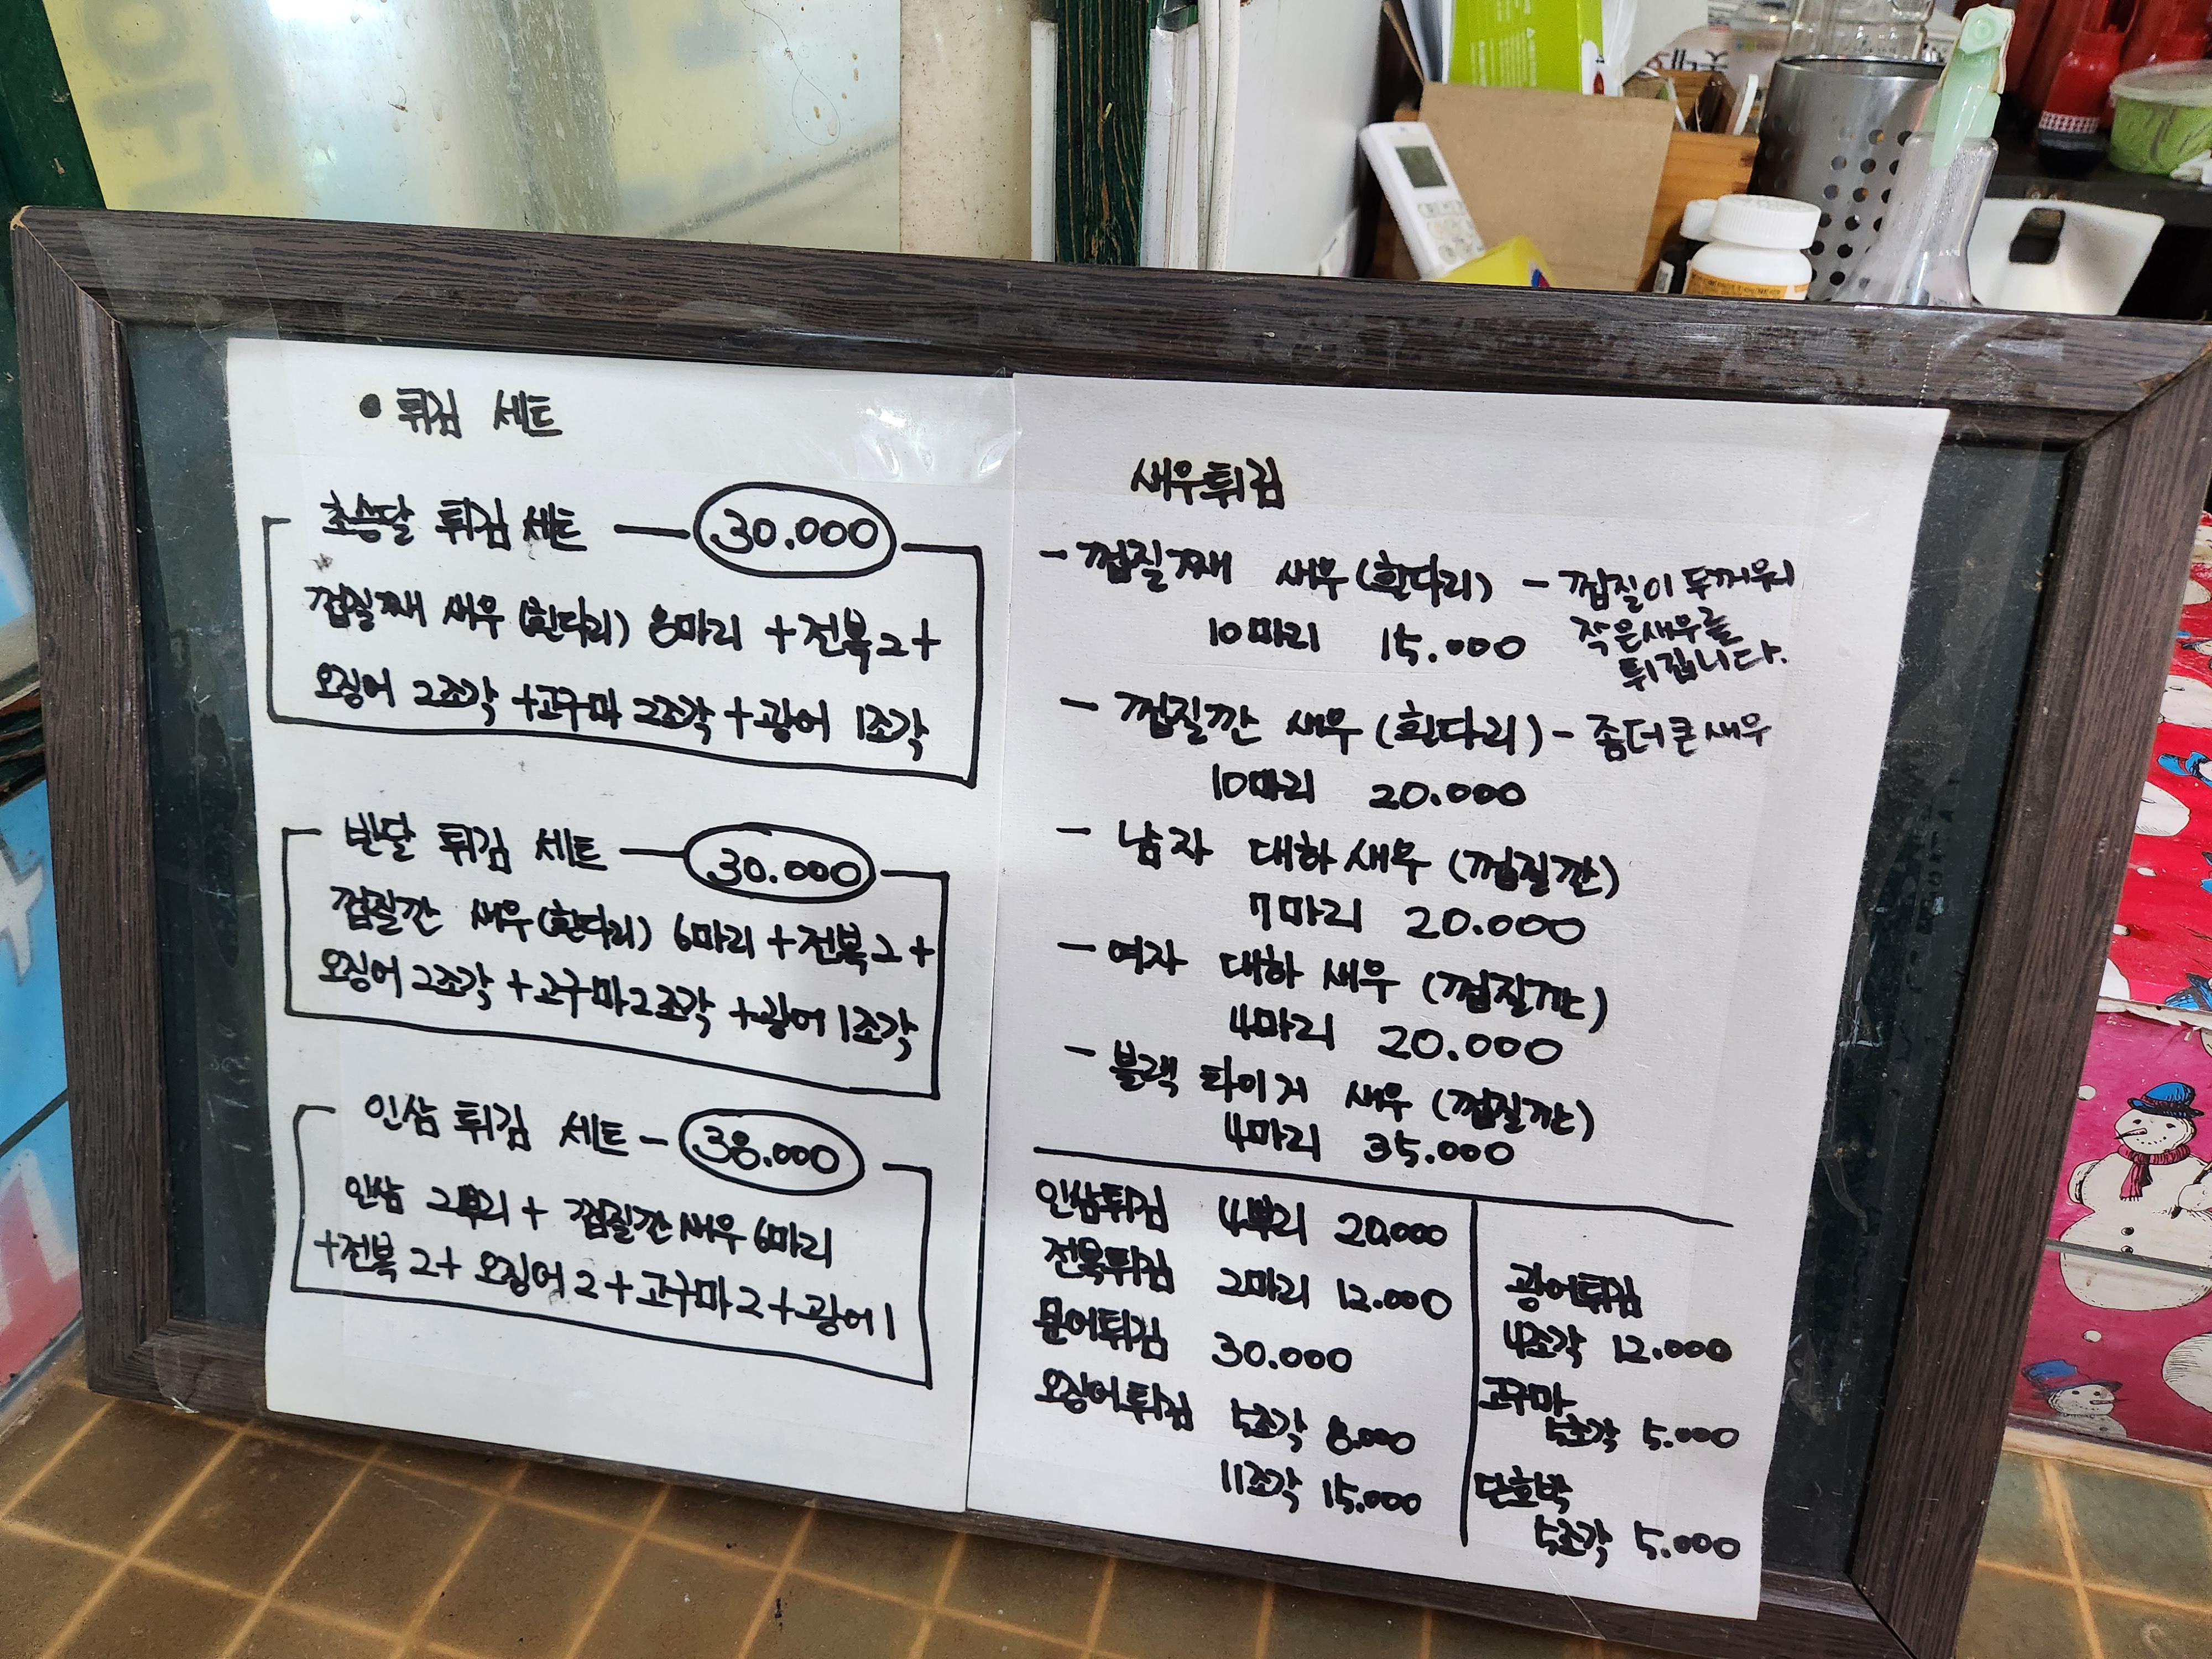 • 튀김 세트
초승달 튀김 세트 — 30.000
껍질째 새우(흰다리) 8마리 + 전복2 +
오징어 2조각 + 고구마 2조각 + 광어 1조각
반달 튀김 세트 — 30.000
껍질깐 새우(흰다리) 6마리 + 전복2 +
오징어 2조각 + 고구마 2조각 + 광어 1조각
인삼 튀김 세트 - 38.000
인삼 2뿌리 + 껍질깐 새우 6마리
+ 전복 2 + 오징어 2 + 고구마 2 + 광어 1
새우튀김
- 껍질째 새우(흰다리) - 껍질이 두꺼워서
10마리 15.000 작은새우를
튀깁니다.
- 껍질깐 새우(흰다리) - 좀더큰새우
10마리 20.000
- 남자 대하 새우 (껍질깐)
7마리 20.000
- 여자 대하 새우 (껍질깐)
4마리 20.000
- 블랙 타이거 새우 (껍질깐)
4마리 35.000
인삼튀김 4뿌리 20.000
전복튀김 2마리 12.000
문어튀김 30.000
오징어튀김 5조각 8.000
11조각 15.000
광어튀김
4조각 12.000
고구마
5조각 5.000
단호박
5조각 5.000